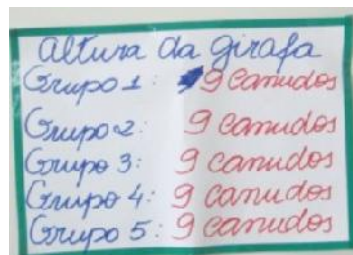 altura da girafa
Grupo 1: 9 canudos
Grupo 2: 9 canudos
Grupo 3: 9 canudos
Grupo 4: 9 canudos
Grupo 5: 9 canudos